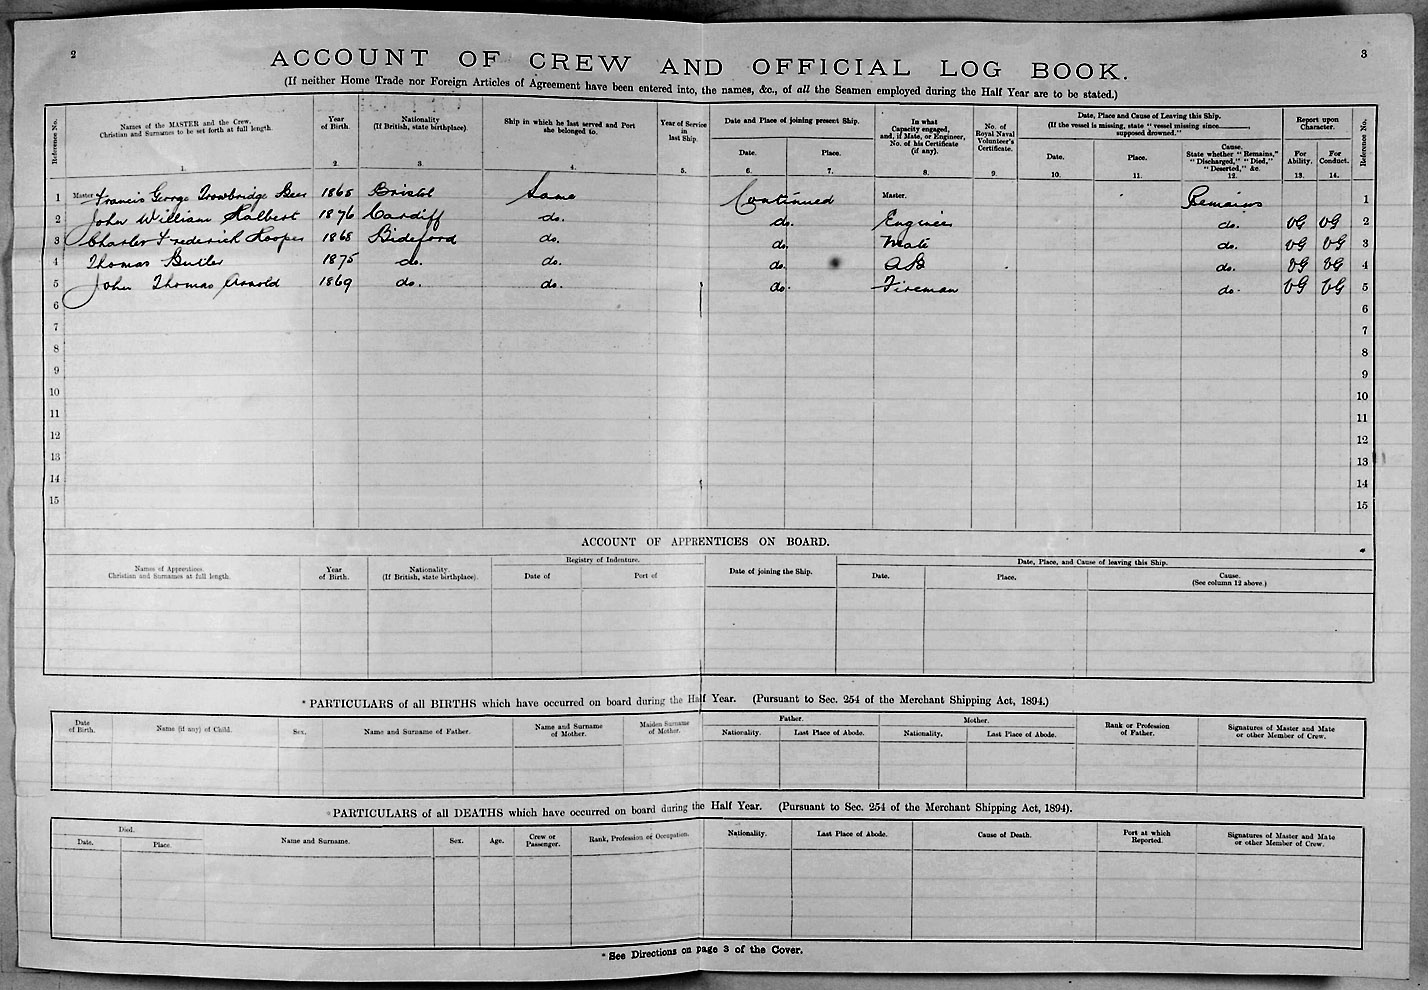 2
3
ACCOUNT OF CREW AND OFFICIAL LOG BOOK.
(If neither Home Trade nor Foreign Articles of Agreement have been entered into, the names, &c., of all the Seamen employed during the Half Year are to be stated.)
Reference No.
Names of the MASTER and the Crew.
Christian and Surnames to be set forth at full length.
1.
Year
of Birth.
2.
Nationality
(If British, state birthplace).
3.
Ship in which he last served and Port
she belonged to.
4.
Year of Service
in
last Ship.
5.
Date and Place of joining present Ship.
Date.
6.
Place.
7.
In what
Capacity engaged,
and, if Mate, or Engineer,
No. of his Certificate
(if any).
8.
No. of
Royal Naval
Volunteer's
Certificate.
9.
Date, Place and Cause of Leaving this Ship.
(If the vessel is missing, state "vessel missing since
supposed drowned."
Date.
10.
Place.
11.
Cause.
State whether "Remains,"
"Discharged," "Died,"
"Deserted," &c.
12.
Report upon
Character.
For
Ability.
13.
For
Conduct.
14.
Reference No.
1 Master Francis George Trowbridge Beer 1865 Bristol Same Continued Master. Remains 1
2 John William Halbert 1876 Cardiff do. do. Engineer do. VG VG 2
3 Charles Frederick Hooper 1868 Bideford do. do. Mate do. VG VG 3
4 Thomas Butler 1875 do. do. do. AB do. VG VG 4
5 John Thomas Arnold 1869 do. do. do. Fireman do. VG VG 5
6 6
7 7
8 8
9 9
10 10
11 11
12 12
13 13
14 14
15 15
ACCOUNT OF APPRENTICES ON BOARD.
Names of Apprentices
Christian and Surnames at full length.
Year
of Birth.
Nationality.
(If British, state birthplace).
Registry of Indenture.
Date of
Port of
Date of joining the Ship.
Date, Place, and Cause of leaving this Ship.
Date.
Place.
Cause.
(See column 12 above.)
* PARTICULARS of all BIRTHS which have occurred on board during the Half Year. (Pursuant to Sec. 254 of the Merchant Shipping Act, 1894.)
Date
of Birth.
Name (if any) of Child.
Sex.
Name and Surname of Father.
Name and Surname
of Mother.
Maiden Surname
of Mother.
Father.
Nationality.
Last Place of Abode.
Mother.
Nationality.
Last Place of Abode.
Rank or Profession
of Father.
Signatures of Master and Mate
or other Member of Crew.
* PARTICULARS of all DEATHS which have occurred on board during the Half Year. (Pursuant to Sec. 254 of the Merchant Shipping Act, 1894).
Died.
Date.
Place.
Name and Surname.
Sex.
Age.
Crew or
Passenger.
Rank, Profession or Occupation.
Nationality.
Last Place of Abode.
Cause of Death.
Port at which
Reported.
Signatures of Master and Mate
or other Member of Crew.
* See Directions on page 3 of the Cover.